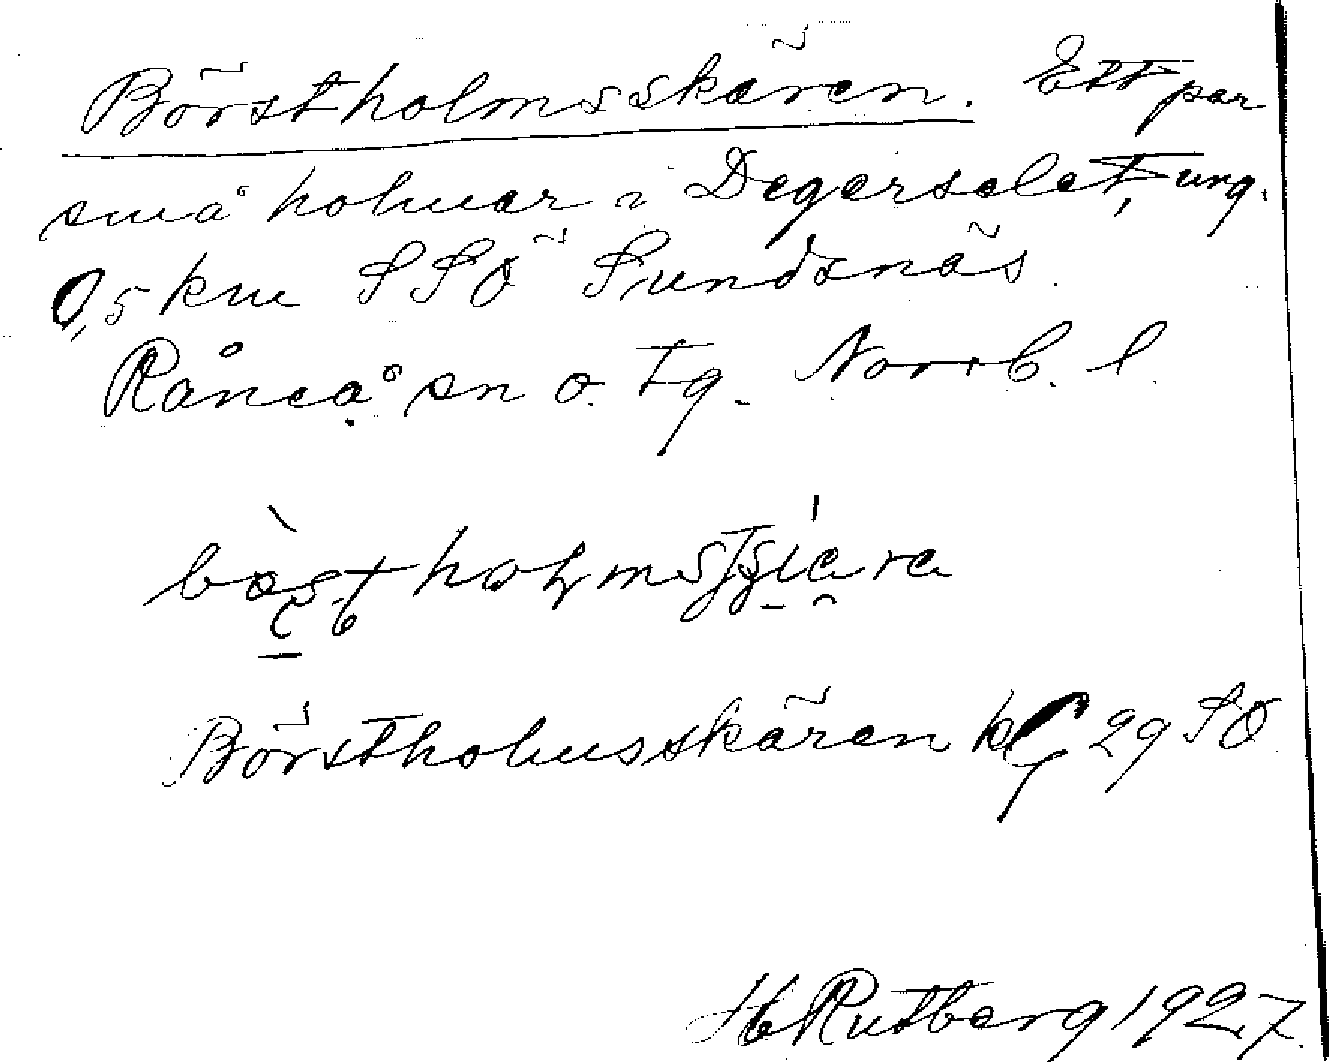 Börstholmsskären. Ett par
små holmar i Degerselet, ung.
0,5 km SSÖ Sundsnäs.
Råneå sn o. tg. Norrb. l.
Börstholmsskären kbl 29 SO
H Rutberg 1927.